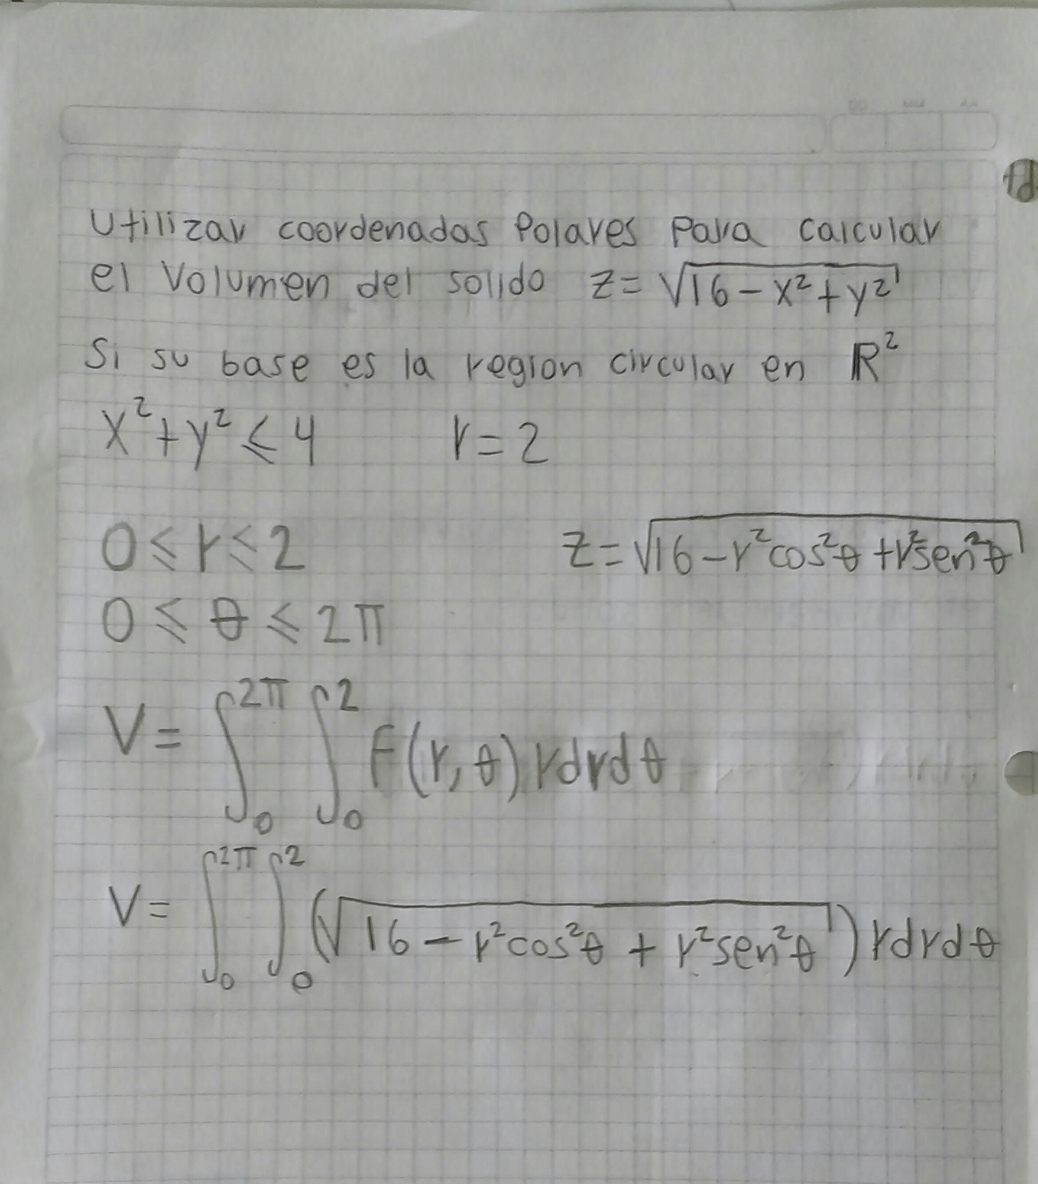 Utilizar coordenadas Polares Para calcular
el Volumen del solido z = √(16 - x² + y²)
Si su base es la region circular en ℝ²
x² + y² ≤ 4 r = 2
0 ≤ r ≤ 2 z = √(16 - r²cos²θ + r²sen²θ)
0 ≤ θ ≤ 2π
V = ∫₀^2π ∫₀^2 F(r, θ) r dr dθ
V = ∫₀^2π ∫₀^2 (√(16 - r²cos²θ + r²sen²θ)) r dr dθ